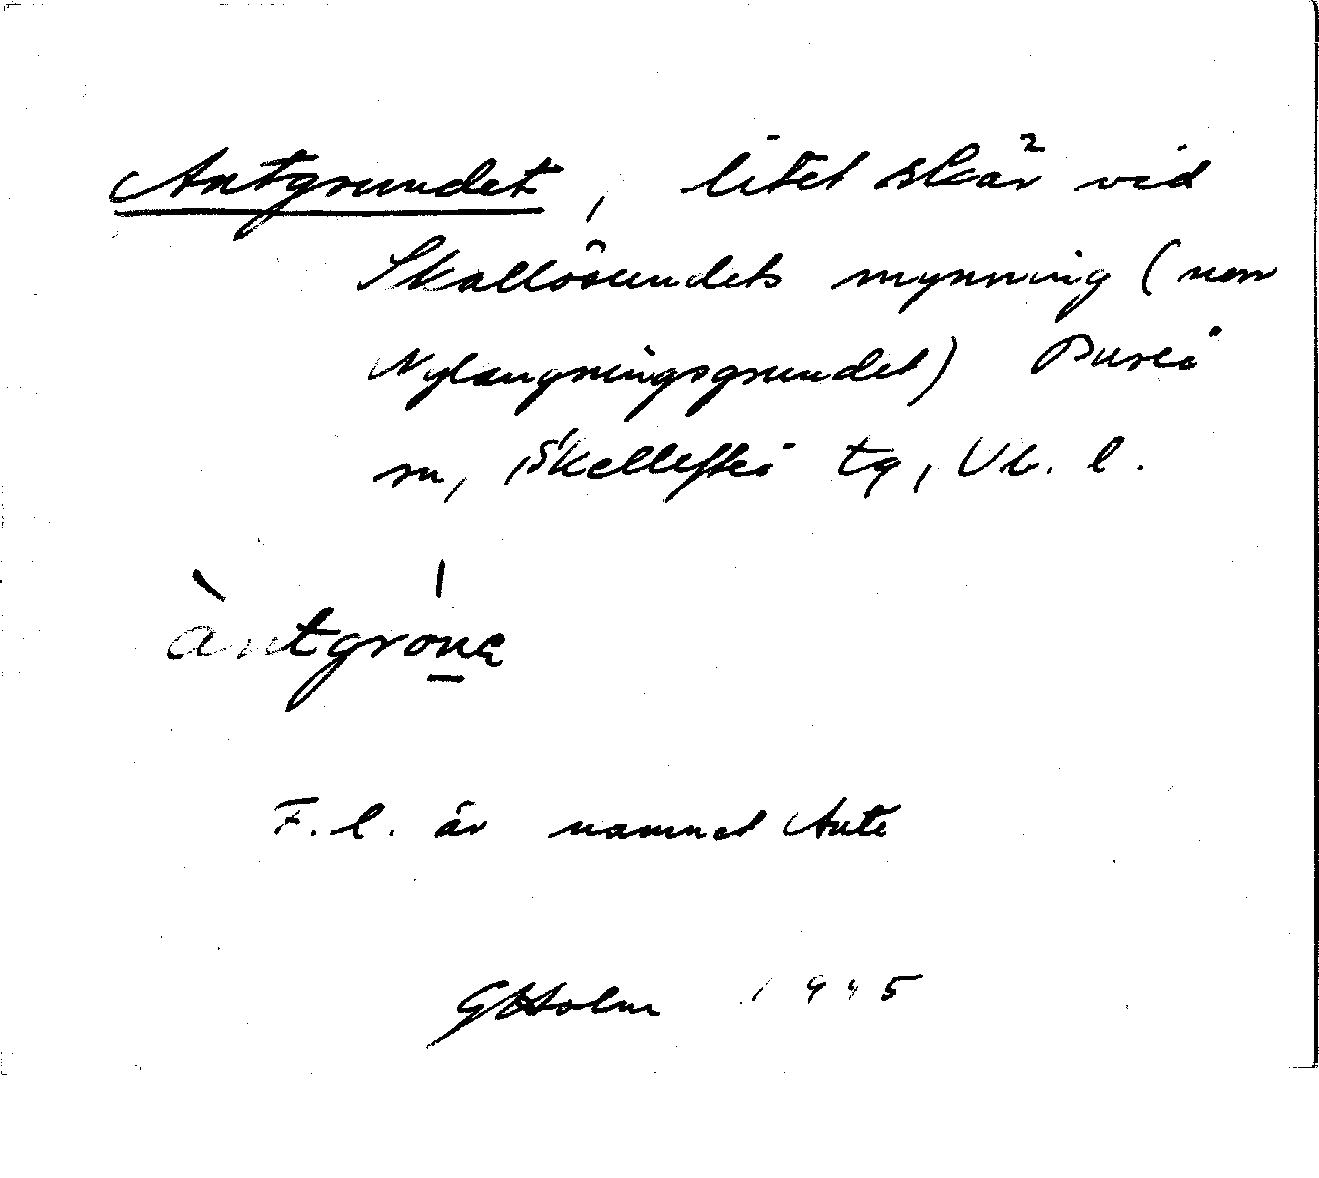 Antgrundet, litet skär vid
Skallösundets mynning (nern
Nylangningsgrundet) Bureå
sn, Skellefteå tg, Vb. l.
àntgróne
F.l. är namnet Ante
GHolm 1945